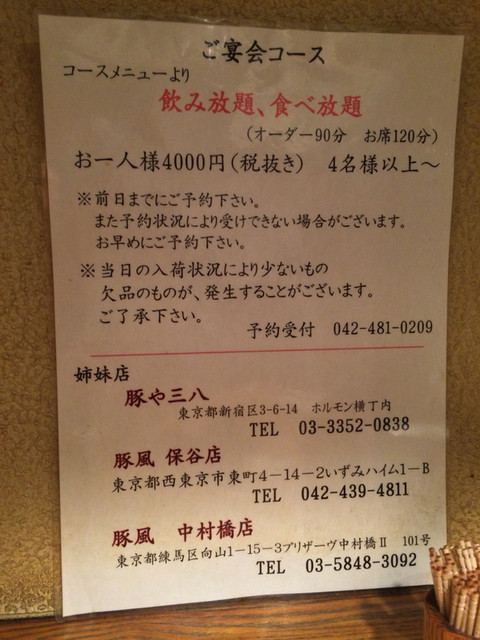 ご宴会コース
コースメニューより
飲み放題、食べ放題
(オーダー90分 お席120分)
お一人様4000円(税抜き) 4名様以上~
※前日までにご予約下さい。
また予約状況により受けできない場合がございます。
お早めにご予約下さい。
※当日の入荷状況により少ないもの
欠品のものが、発生することがございます。
ご了承下さい。
予約受付 042-481-0209
姉妹店
豚や三八
東京都新宿区3-6-14 ホルモン横丁内
TEL 03-3352-0838
豚風 保谷店
東京都西東京市東町4-14-2いずみハイム1-B
TEL 042-439-4811
豚風 中村橋店
東京都練馬区向山1-15-3プリザーヴ中村橋Ⅱ 101号
TEL 03-5848-3092